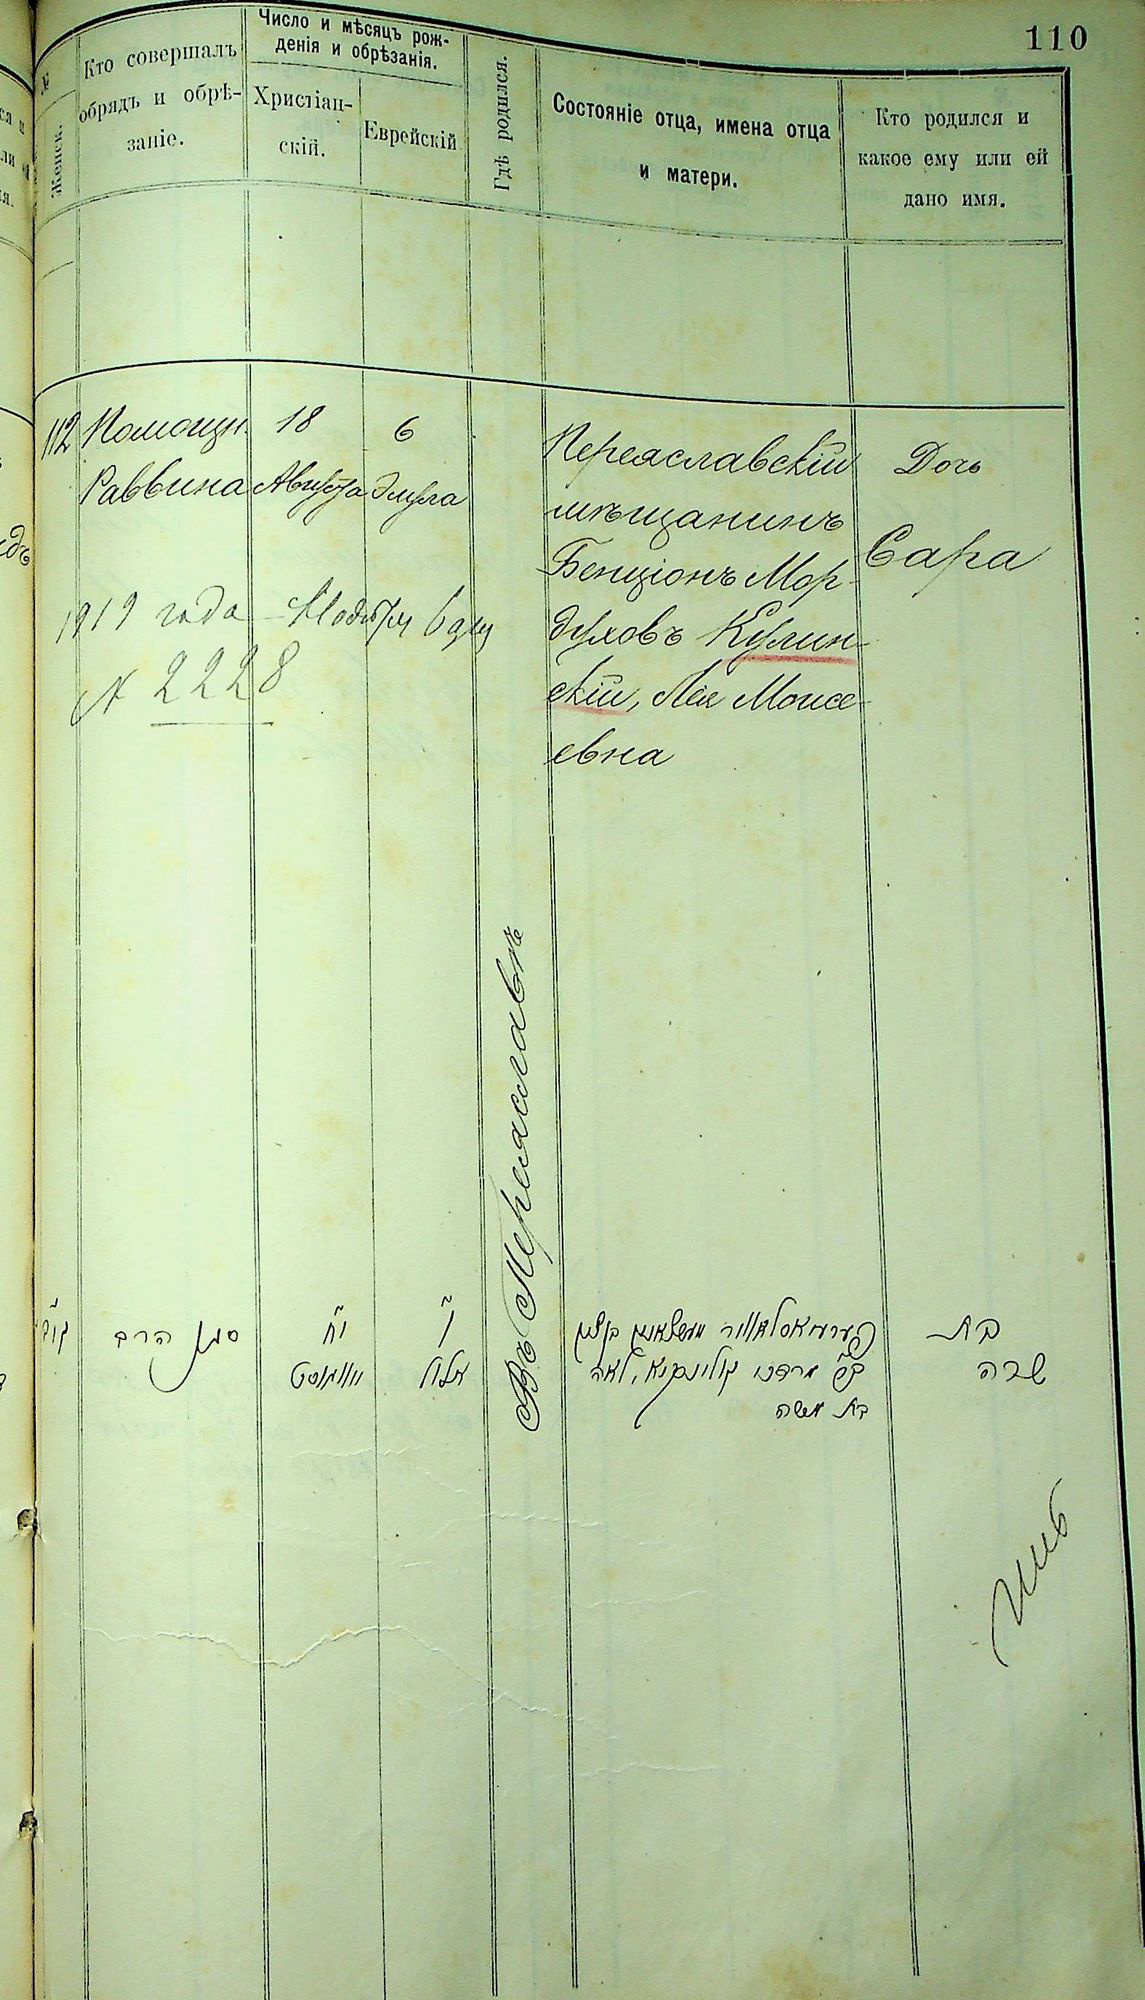 110
№
Женск.
Кто совершалъ
обрядъ и обрѣ-
заніе.
Число и мѣсяцъ рож-
денія и обрѣзанія.
Христіан-
скій.
Еврейскій
Гдѣ родился.
Состояніе отца, имена отца
и матери.
Кто родился и
какое ему или ей
дано имя.
112
Помощн.
Раввина
18
Августа
6
Элула
Въ Переяславѣ
Переяславскій
мѣщанинъ
Бенціонъ Мор-
духовъ Кулин-
скій, Лея Моисе-
евна
Дочь
Сара
1919 года
№ 2228
קי"ב
סגן הרב
י"ח
אווגוסט
ו'
אלול
בן מרדכי קולינסקי, לאה
בת משה
בת
שרה